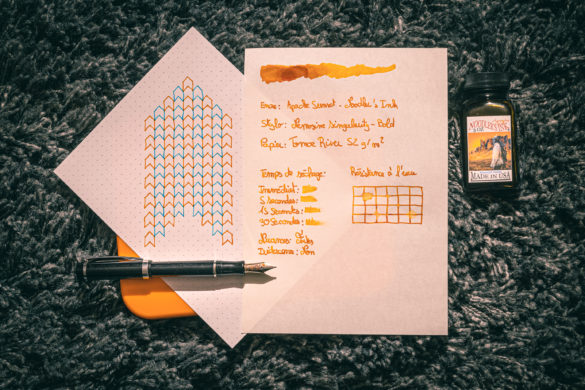 Encre: Apache Sunset - Noodler's Ink
Stylo: Penmaine Singularity - Bold
Papier: Tomoe River 52 g/m²
Temps de séchage:
Immédiat:
5 secondes:
15 Secondes:
30 Secondes:
Nuances: Fortes
Duochrome: Non
Résistance à l'eau
MADE IN USA